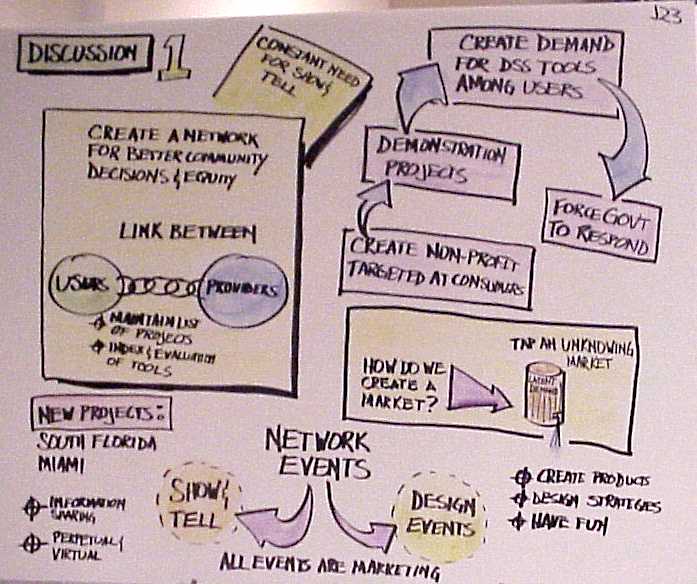 J23
DISCUSSION 1
CONSTANT NEED
FOR SHOW &
TELL
CREATE A NETWORK
FOR BETTER COMMUNITY
DECISIONS & EQUITY
LINK BETWEEN
USERS
PROVIDERS
MAINTAIN LIST
OF PROJECTS
INDEX & EVALUATION
OF TOOLS
CREATE DEMAND
FOR DSS TOOLS
AMONG USERS
DEMONSTRATION
PROJECTS
CREATE NON-PROFIT
TARGETED AT CONSUMERS
FORCE GOVT
TO RESPOND
HOW DO WE
CREATE A
MARKET?
TAP AN UNKNOWING
MARKET
LATENT
DEMAND
NEW PROJECTS:
SOUTH FLORIDA
MIAMI
INFORMATION
SHARING
PERPETUALLY
VIRTUAL
NETWORK
EVENTS
SHOW &
TELL
DESIGN
EVENTS
ALL EVENTS ARE MARKETING
CREATE PRODUCTS
DESIGN STRATEGIES
HAVE FUN